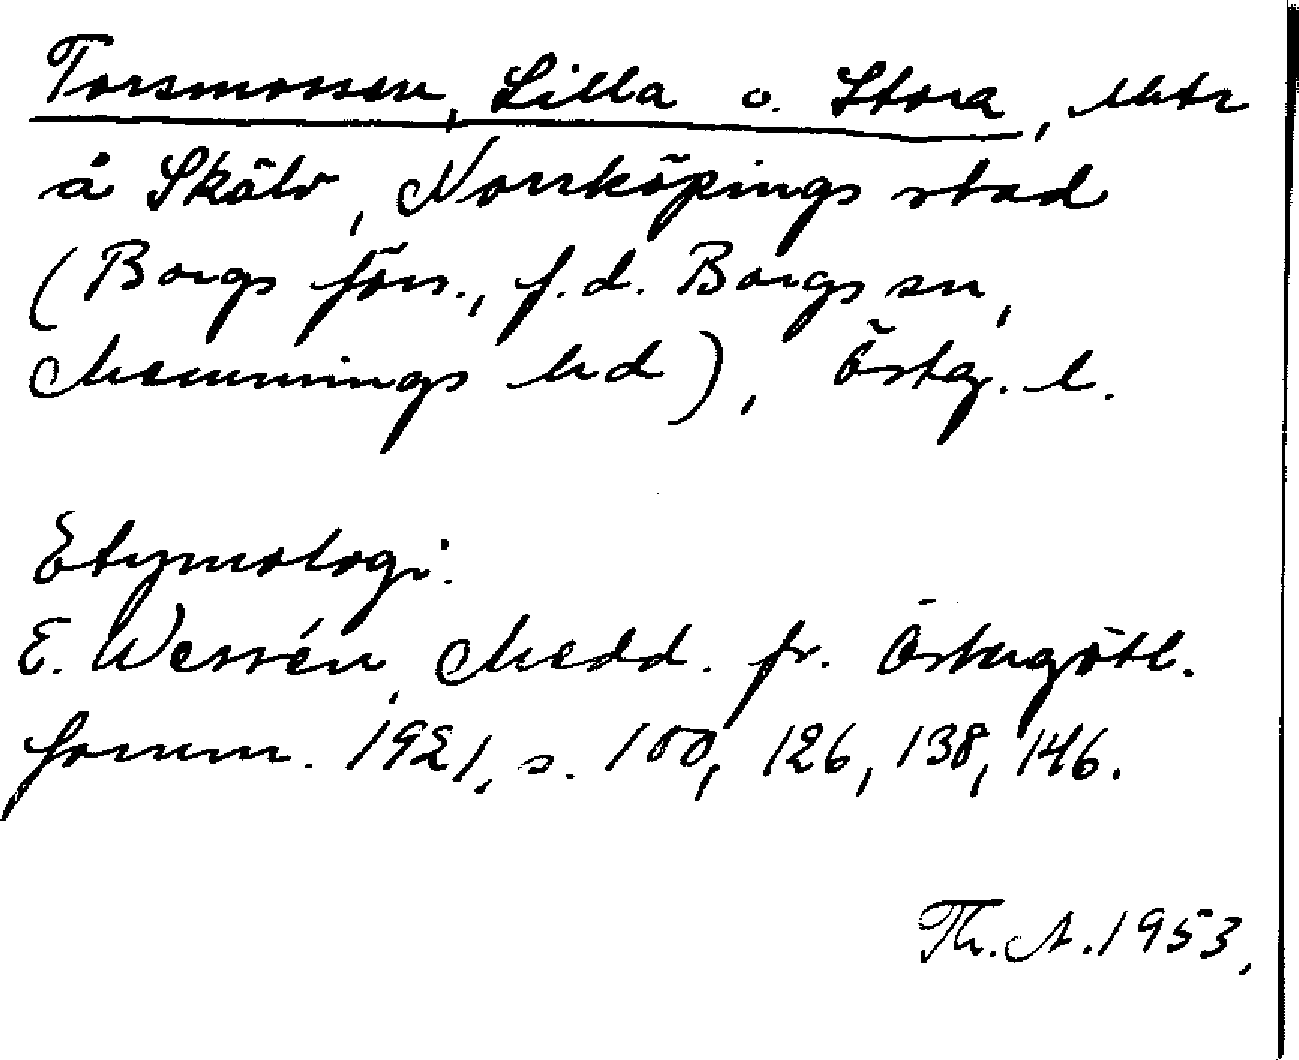 Torsmossen, Lilla o. Stora, mtr
å Skälv, Norrköpings stad
(Borgs förs., f.d. Borgs sn,
Memmings hd), Östg. l.
Etymologi:
E. Wessén, Medd. fr. Östergötl.
fornm. 1921, s. 100, 126, 138, 146.
Th. A. 1953,